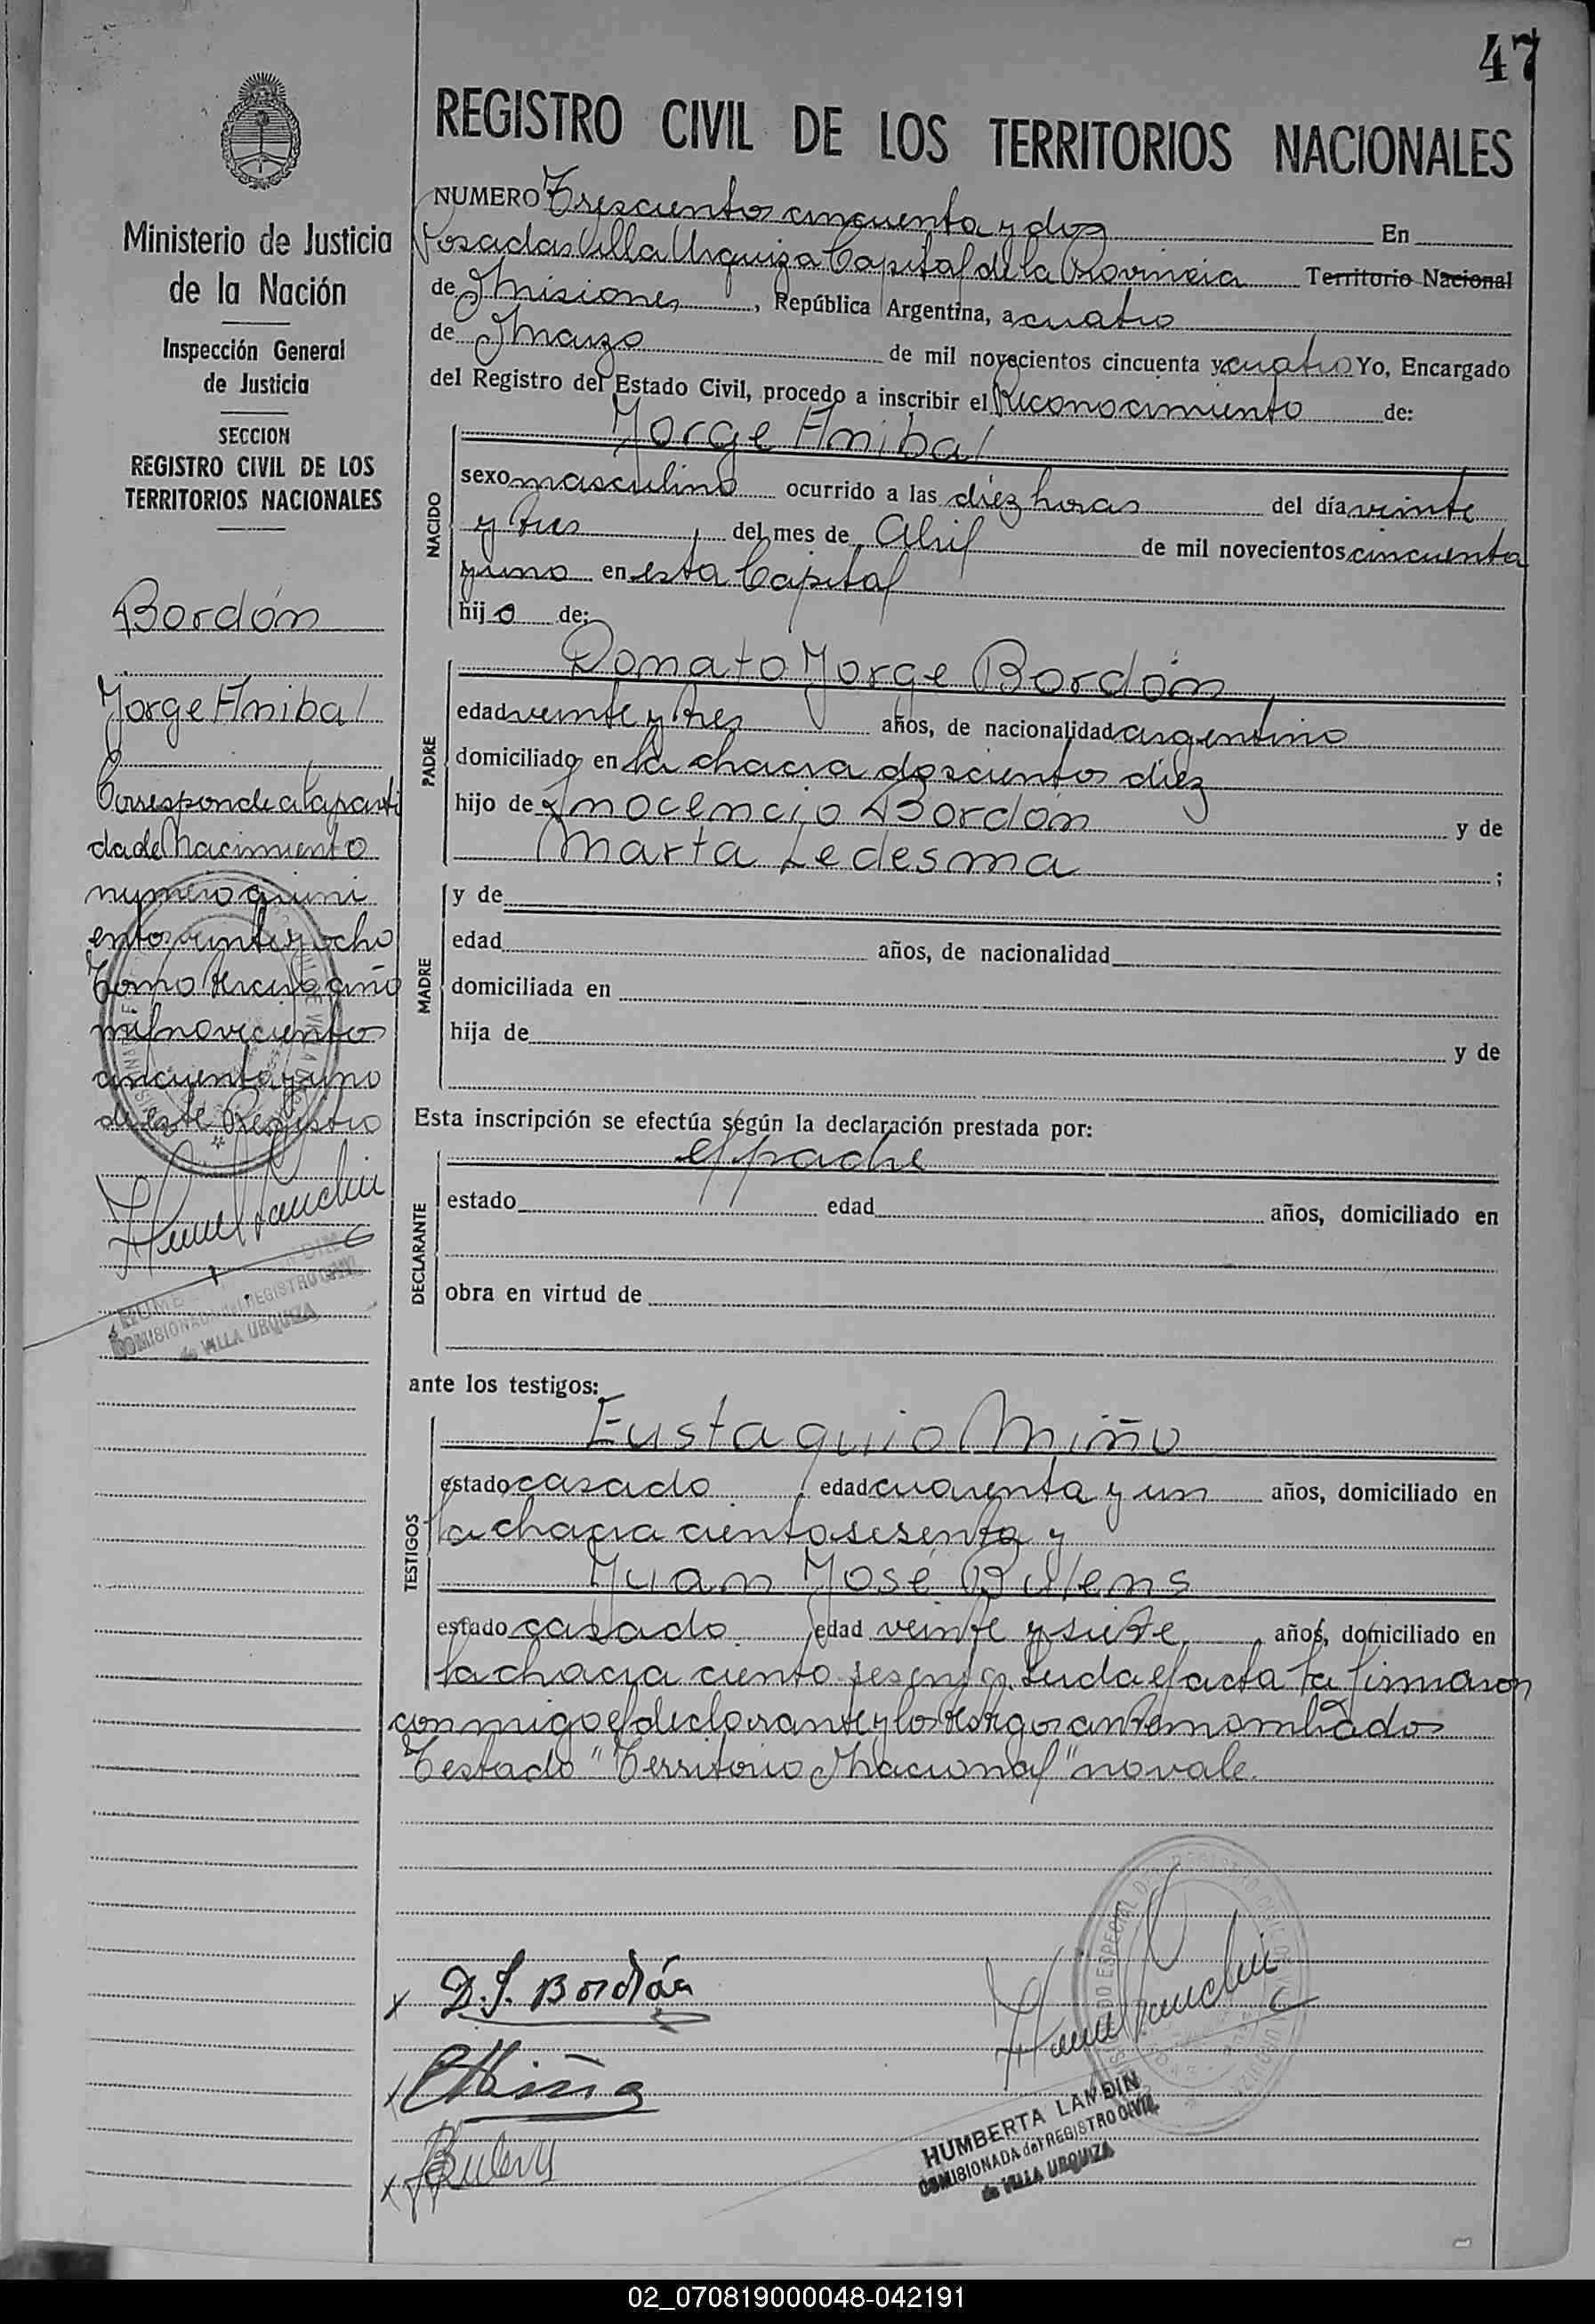 47
REGISTRO CIVIL DE LOS TERRITORIOS NACIONALES
Ministerio de Justicia
de la Nación
Inspección General
de Justicia
SECCION
REGISTRO CIVIL DE LOS
TERRITORIOS NACIONALES
Bordón
Jorge Anibal
Corresponde a la parti
da de Nacimiento
numero quini
entos veinte y ocho
Tomo tercero año
mil novecientos
cincuenta y uno
de este Registro
COMISIONADA del REGISTRO CIVIL
de VILLA URQUIZA
NUMERO Trescientos cincuenta y dos En
Posadas Villa Urquiza Capital de la Provincia Territorio Nacional
de Misiones, República Argentina, a cuatro
de Marzo de mil novecientos cincuenta y cuatro Yo, Encargado
del Registro del Estado Civil, procedo a inscribir el Reconocimiento de:
NACIDO
Jorge Anibal
sexo masculino ocurrido a las diez horas del día veinte
y tres del mes de Abril de mil novecientos cincuenta
y uno en esta Capital
hijo de:
PADRE
Donato Jorge Bordón
edad veinte y tres años, de nacionalidad argentino
domiciliado en la chacra doscientos diez
hijo de Inocencio Bordón y de
Marta Ledesma ;
MADRE
y de
edad años, de nacionalidad
domiciliada en
hija de y de
Esta inscripción se efectúa según la declaración prestada por:
DECLARANTE
el padre
estado edad años, domiciliado en
obra en virtud de
ante los testigos:
TESTIGOS
Eustaquio Miño
estado casado edad cuarenta y un años, domiciliado en
la chacra ciento sesenta y
Juan José Bulens
estado casado edad veinte y siete años, domiciliado en
la chacra ciento sesenta. Leida el acta la firmaron
conmigo el declarante y los testigos antenombrados
Testado "Territorio Nacional" no vale.
D. J. Bordón
EMiño
JJBulens
HUMBERTA LANDIN
COMISIONADA del REGISTRO CIVIL
de VILLA URQUIZA
02_070819000048-042191